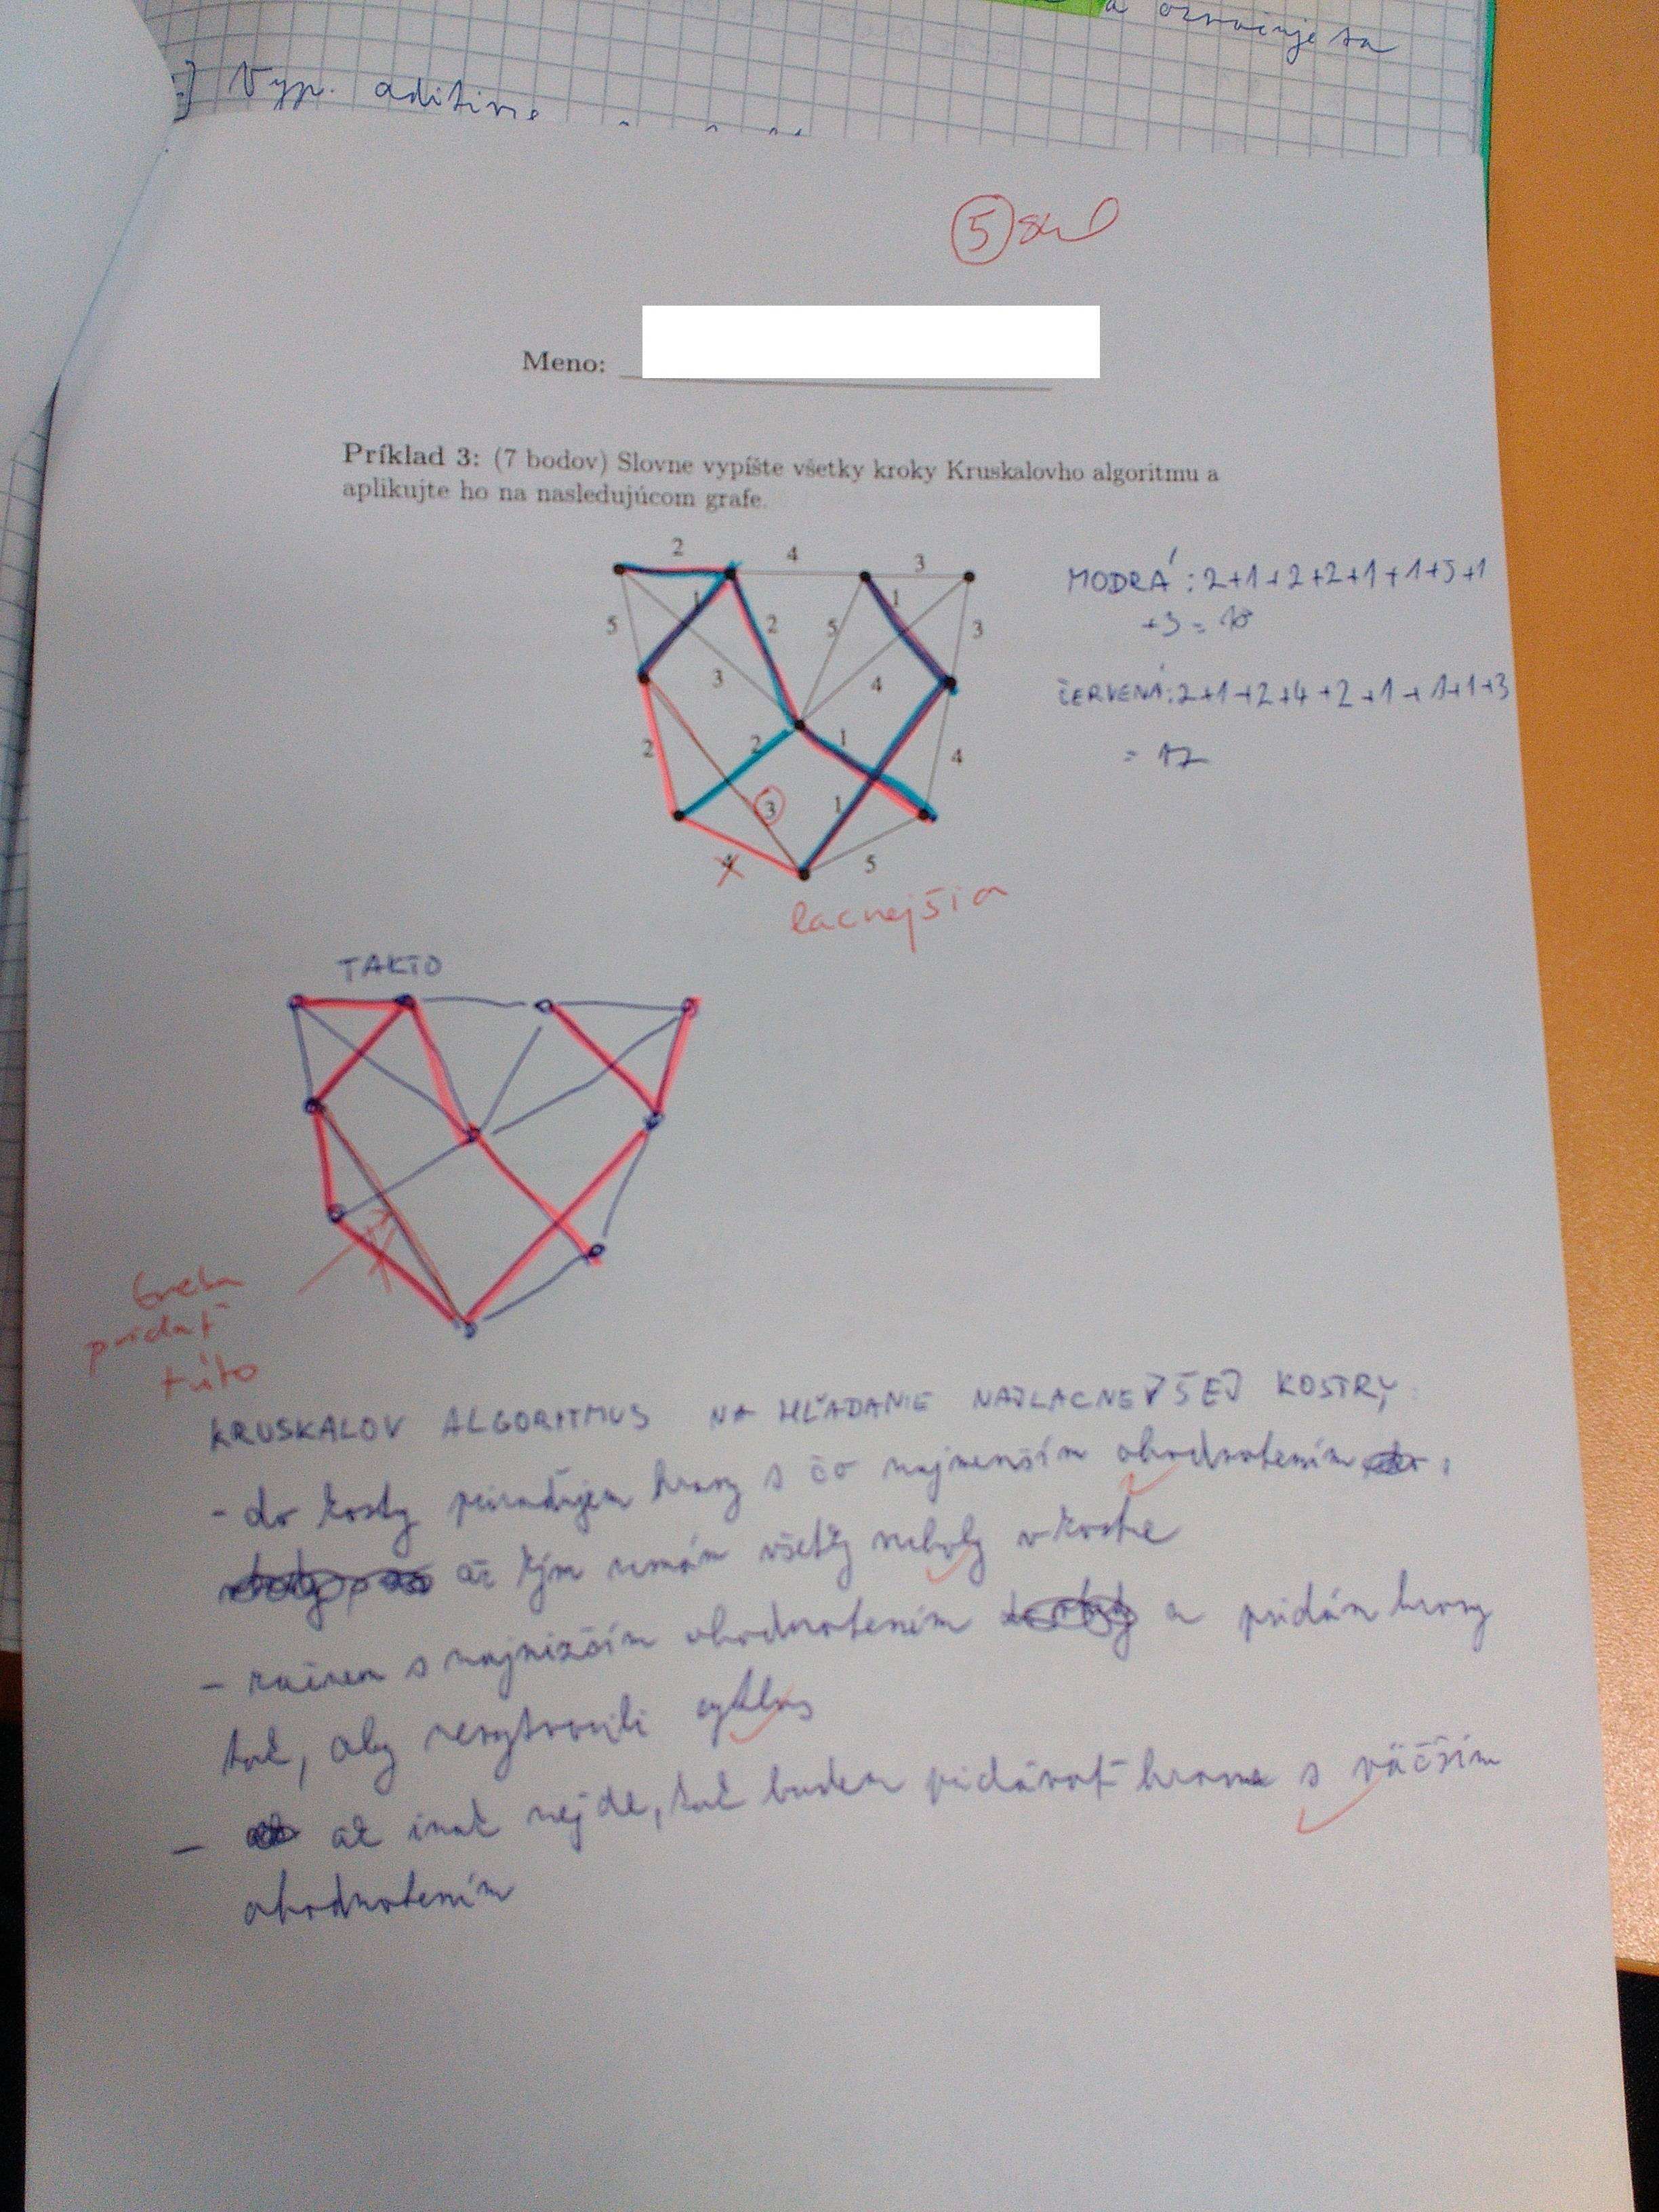 a označuje sa
Vyp. aditívne
5
Meno:
Príklad 3: (7 bodov) Slovne vypíšte všetky kroky Kruskalovho algoritmu a
aplikujte ho na nasledujúcom grafe.
2 4 3
5 1 2 5 1 3
3 4
2 2 1 4
3 1
4 5
lacnejšia
MODRÁ: 2+1+2+2+1+1+5+1
+3 = 18
ČERVENÁ: 2+1+2+4+2+1+1+1+3
= 17
TAKTO
treba
pridať
túto
KRUSKALOV ALGORITMUS NA HĽADANIE NAJLACNEJŠEJ KOSTRY:
- do kostry priraďujem hrany s čo najmenším ohodnotením
až kým nemám všetky vrcholy v kostre
- začnem s najnižším ohodnotením a pridám hrany
tak, aby nevytvorili cyklus
- ak inak nejde, tak budem pridávať hrany s väčším
ohodnotením